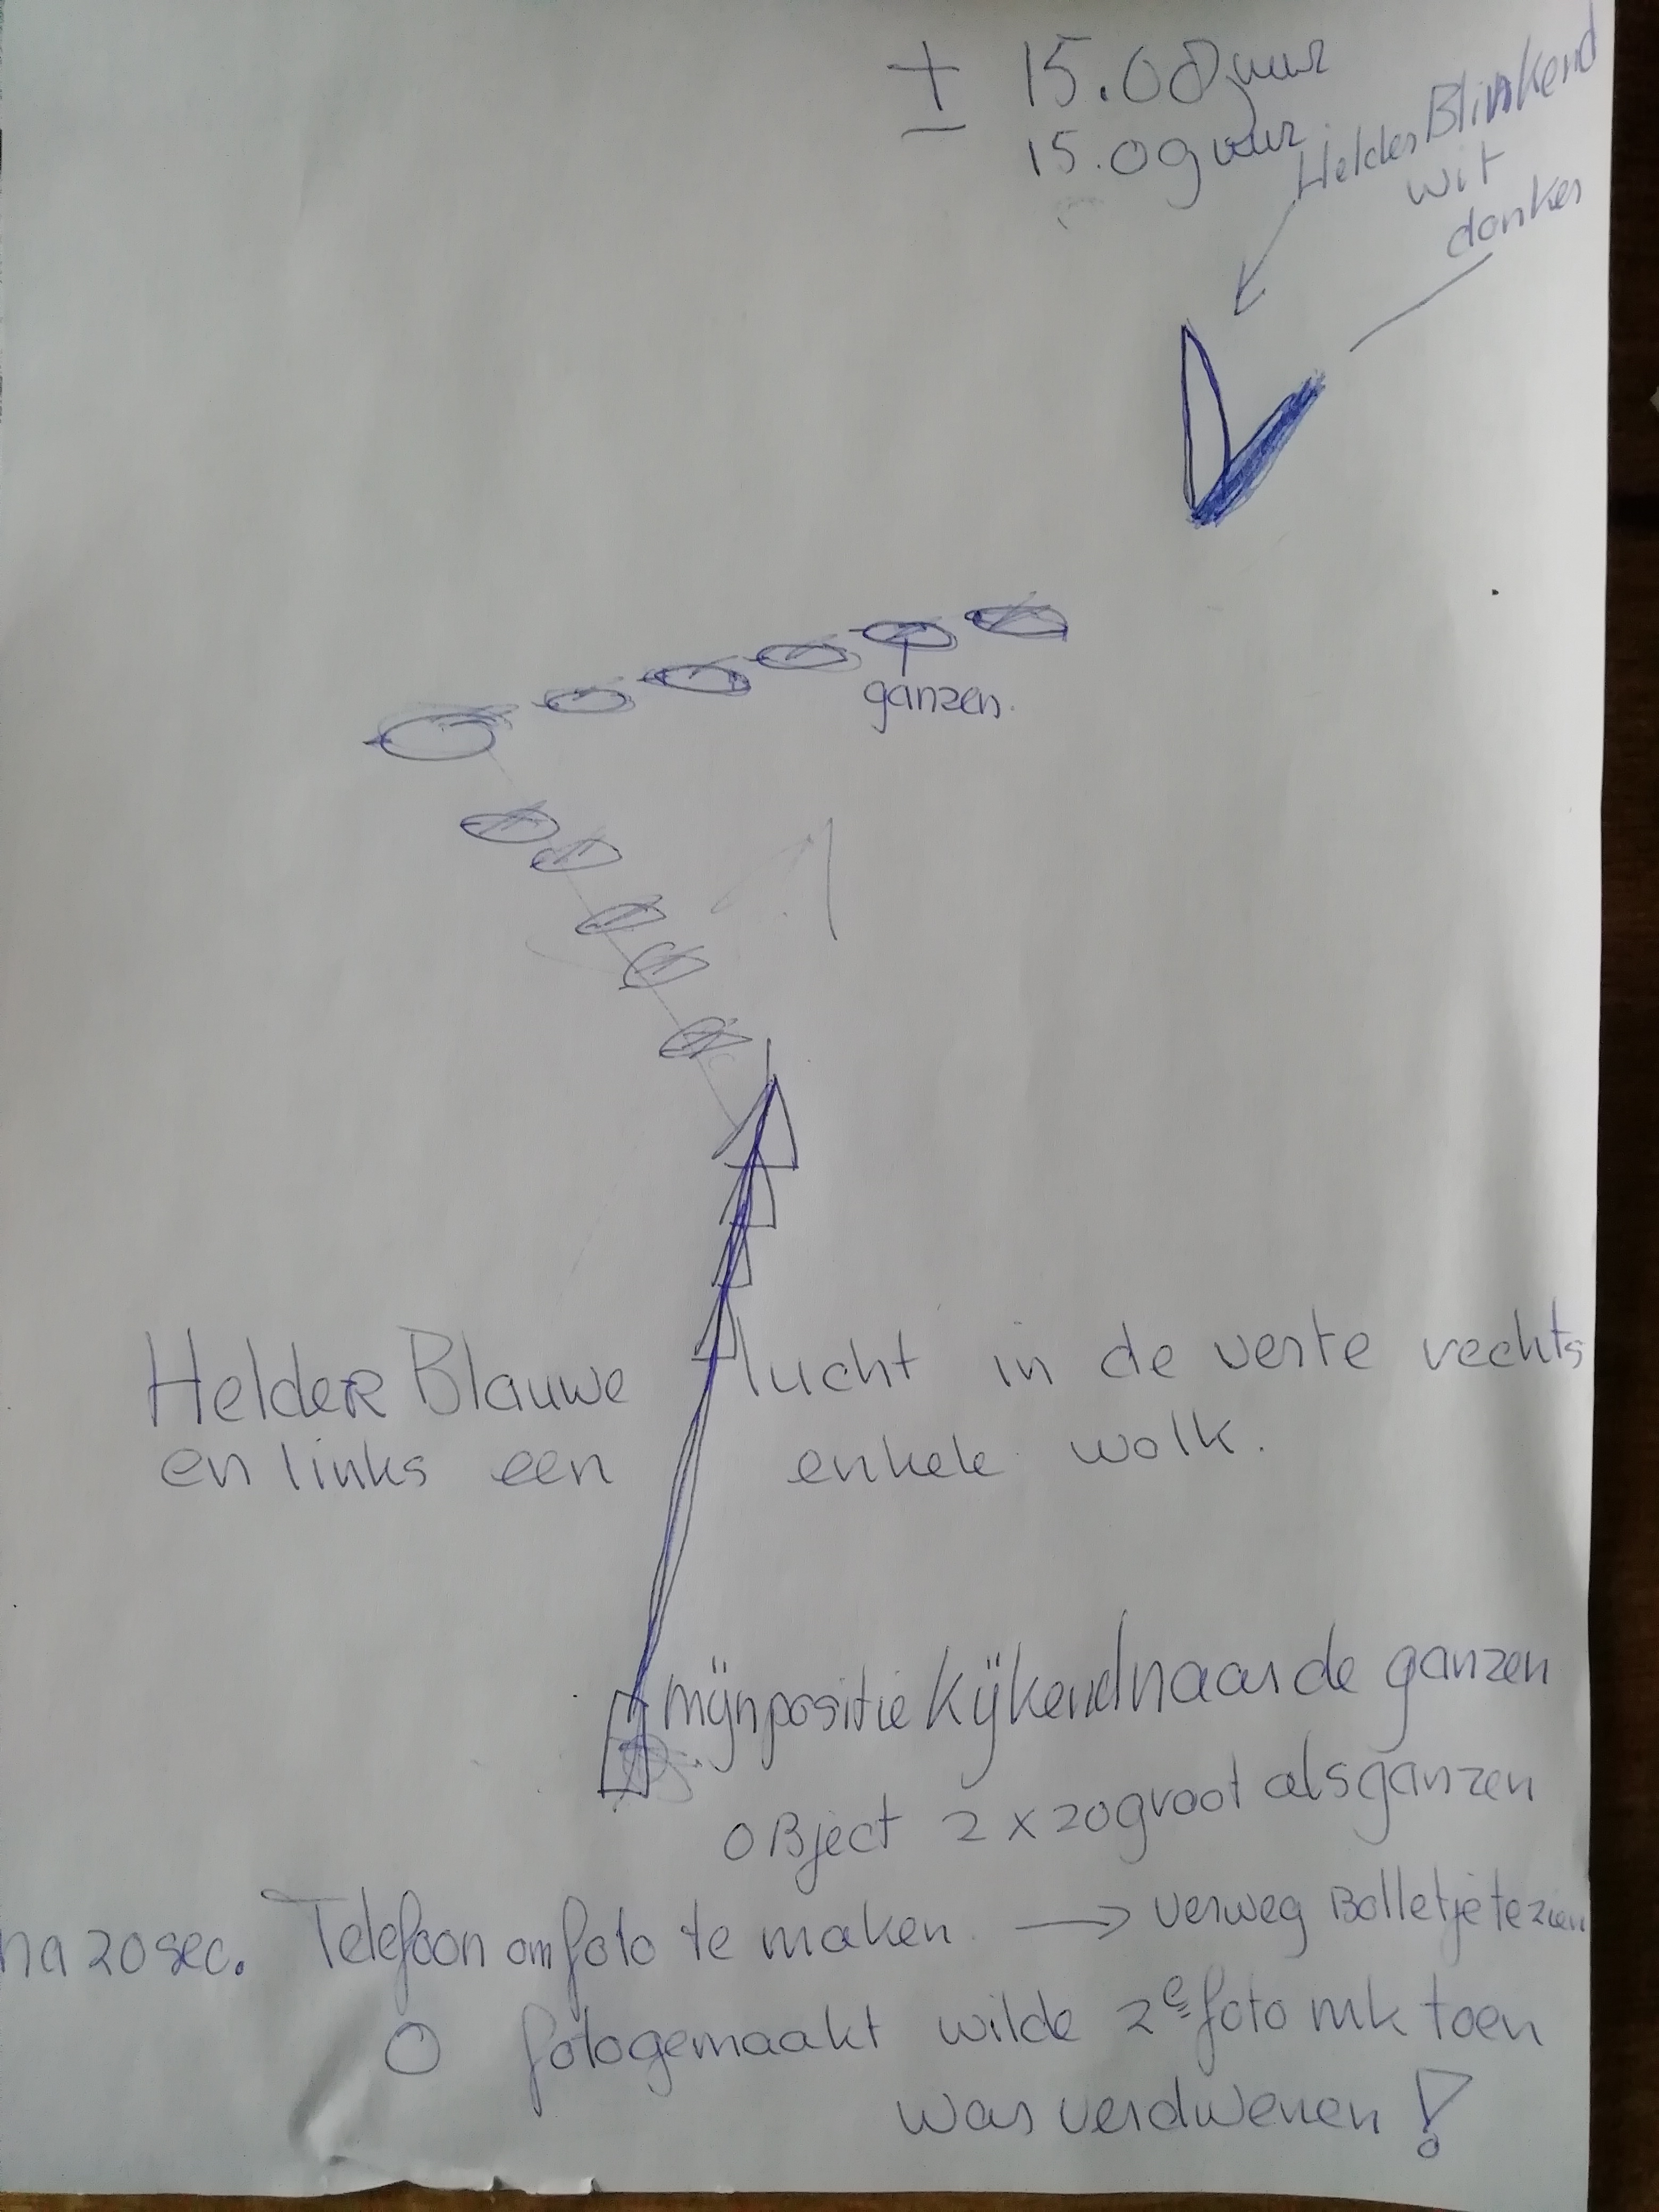 ± 15.08 uur
15.09 uur
Helder Blinkend
wit
donker
ganzen.
Helder Blauwe lucht in de verte rechts
en links een enkele wolk.
mijn positie kijkend naar de ganzen
OBject 2 x zo groot als ganzen
na 20 sec. Telefoon om foto te maken. → verweg Bolletje te zien
O foto gemaakt wilde 2e foto mk toen
was verdwenen !